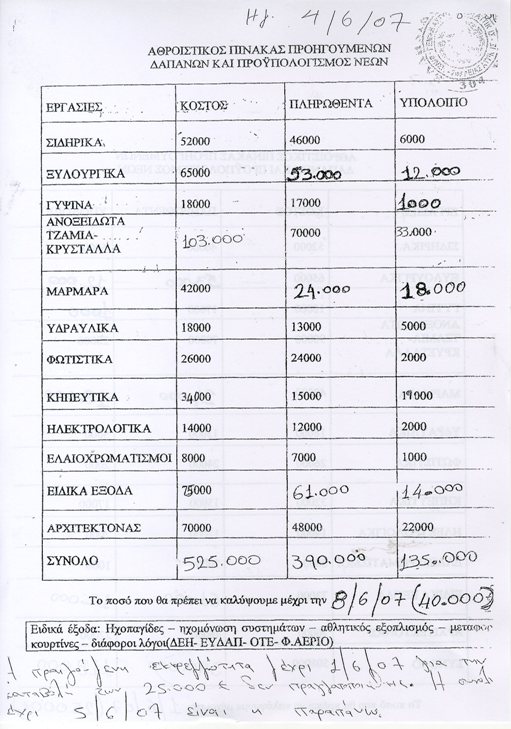 Ημ. 4/6/07
304
ΑΘΡΟΙΣΤΙΚΟΣ ΠΙΝΑΚΑΣ ΠΡΟΗΓΟΥΜΕΝΩΝ
ΔΑΠΑΝΩΝ ΚΑΙ ΠΡΟΫΠΟΛΟΓΙΣΜΟΣ ΝΕΩΝ
ΕΡΓΑΣΙΕΣ ΚΟΣΤΟΣ ΠΛΗΡΩΘΕΝΤΑ ΥΠΟΛΟΙΠΟ
ΣΙΔΗΡΙΚΑ 52000 46000 6000
ΞΥΛΟΥΡΓΙΚΑ 65000 53.000 12.000
ΓΥΨΙΝΑ 18000 17000 1000
ΑΝΟΞΕΙΔΩΤΑ
ΤΖΑΜΙΑ- 103.000 70000 33.000
ΚΡΥΣΤΑΛΛΑ
ΜΑΡΜΑΡΑ 42000 24.000 18.000
ΥΔΡΑΥΛΙΚΑ 18000 13000 5000
ΦΩΤΙΣΤΙΚΑ 26000 24000 2000
ΚΗΠΕΥΤΙΚΑ 34000 15000 19000
ΗΛΕΚΤΡΟΛΟΓΙΚΑ 14000 12000 2000
ΕΛΑΙΟΧΡΩΜΑΤΙΣΜΟΙ 8000 7000 1000
ΕΙΔΙΚΑ ΕΞΟΔΑ 75000 61.000 14.000
ΑΡΧΙΤΕΚΤΟΝΑΣ 70000 48000 22000
ΣΥΝΟΛΟ 525.000 390.000 135.000
Το ποσό που θα πρέπει να καλύψουμε μέχρι την 8/6/07 (40.000)
Ειδικά έξοδα: Ηχοπαγίδες – ηχομόνωση συστημάτων – αθλητικός εξοπλισμός – μεταφορ
κουρτίνες – διάφοροι λόγοι(ΔΕΗ- ΕΥΔΑΠ- ΟΤΕ- Φ.ΑΕΡΙΟ)
Η εκκρεμότητα μέχρι 1/6/07 για την
καταβολή των 25.000 € δεν πραγματοποιήθηκε. Η
μέχρι 5/6/07 είναι η παραπάνω.